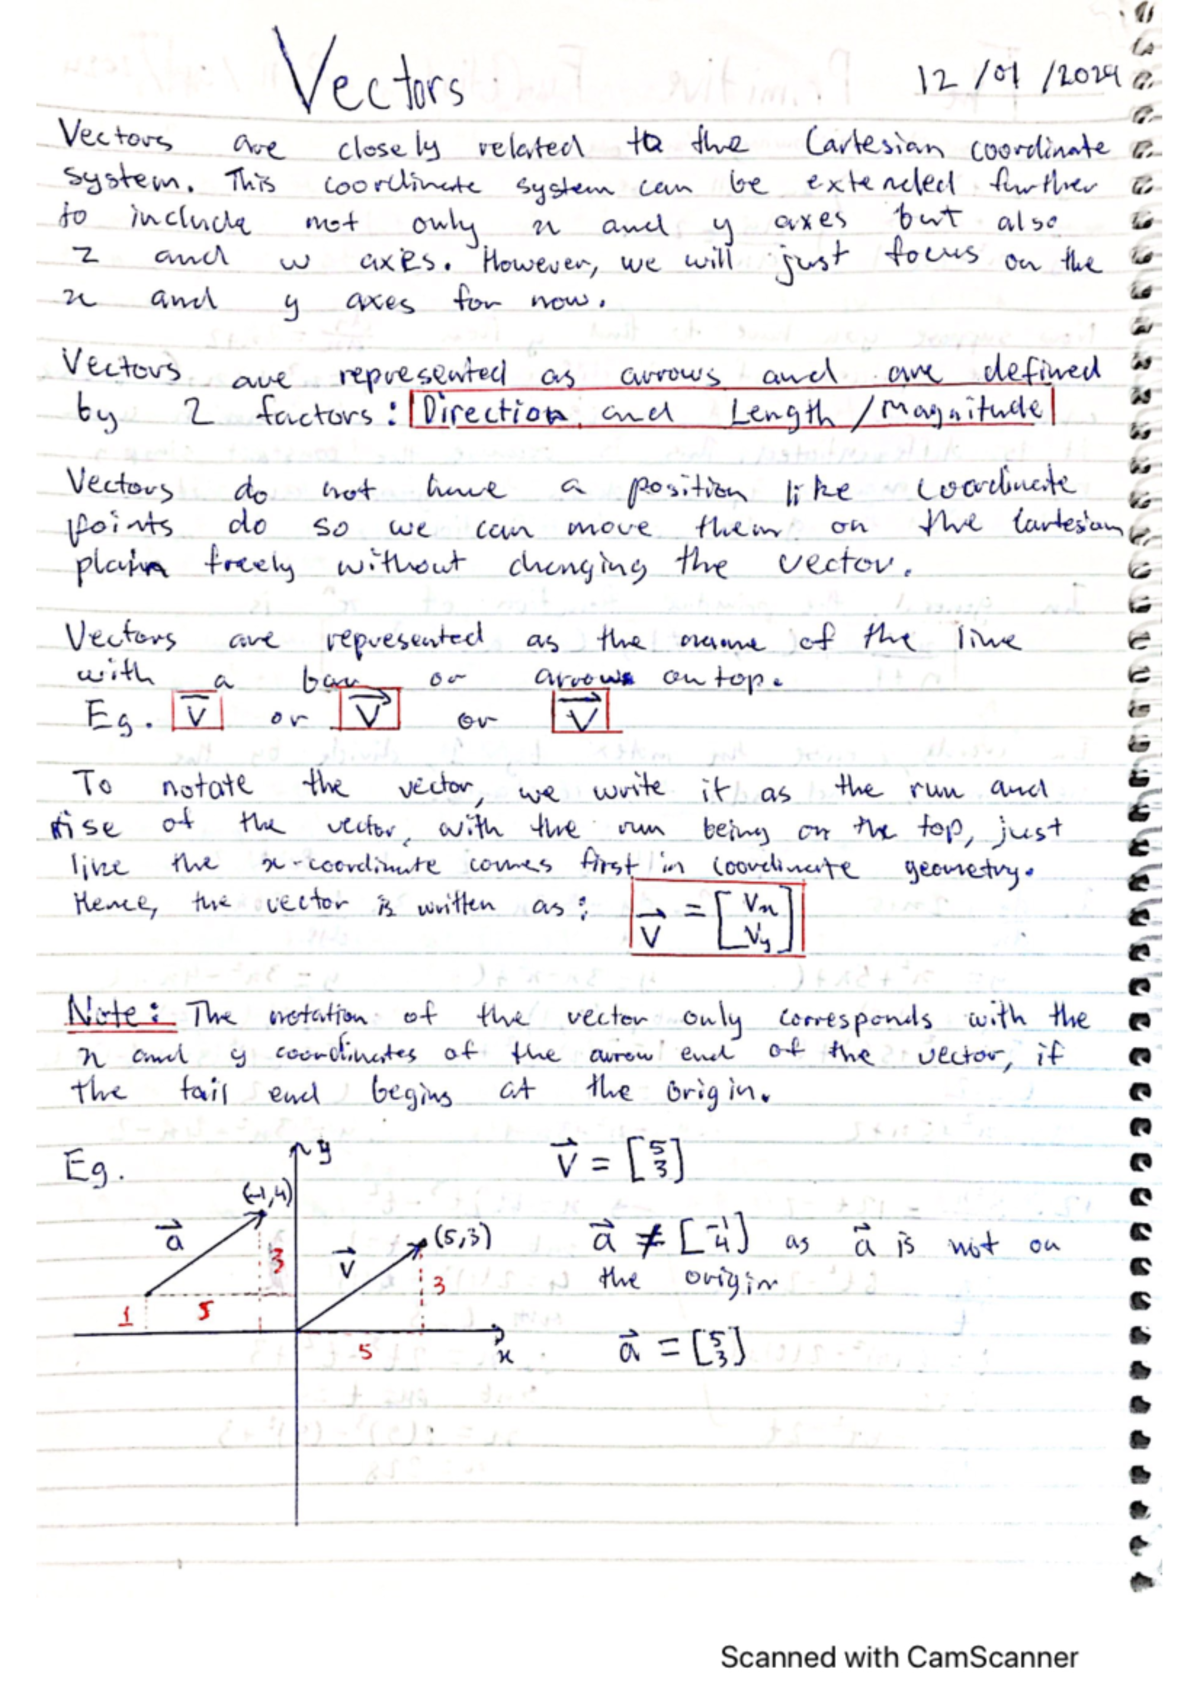 Vectors
12/01/2024
Vectors are closely related to the Cartesian coordinate
system. This coordinate system can be extended further
to include not only x and y axes but also
z and w axes. However, we will just focus on the
x and y axes for now.
Vectors are represented as arrows and are defined
by 2 factors: Direction and Length/Magnitude
Vectors do not have a position like coordinate
points do so we can move them on the Cartesian
plain freely without changing the vector.
Vectors are represented as the name of the line
with a bar or arrows on top.
Eg. v̅ or v⃗ or v⃗
To notate the vector, we write it as the run and
rise of the vector, with the run being on the top, just
like the x-coordinate comes first in coordinate geometry.
Hence, the vector is written as: v⃗ = [Vx Vy]
Note: The notation of the vector only corresponds with the
x and y coordinates of the arrow end of the vector, if
the tail end begins at the origin.
Eg.
y
v⃗ = [5 3]
(-1,4)
a⃗
3
v⃗
(5,3)
3
1
5
5
x
a⃗ ≠ [-1 4] as a⃗ is not on
the origin
a⃗ = [5 3]
Scanned with CamScanner